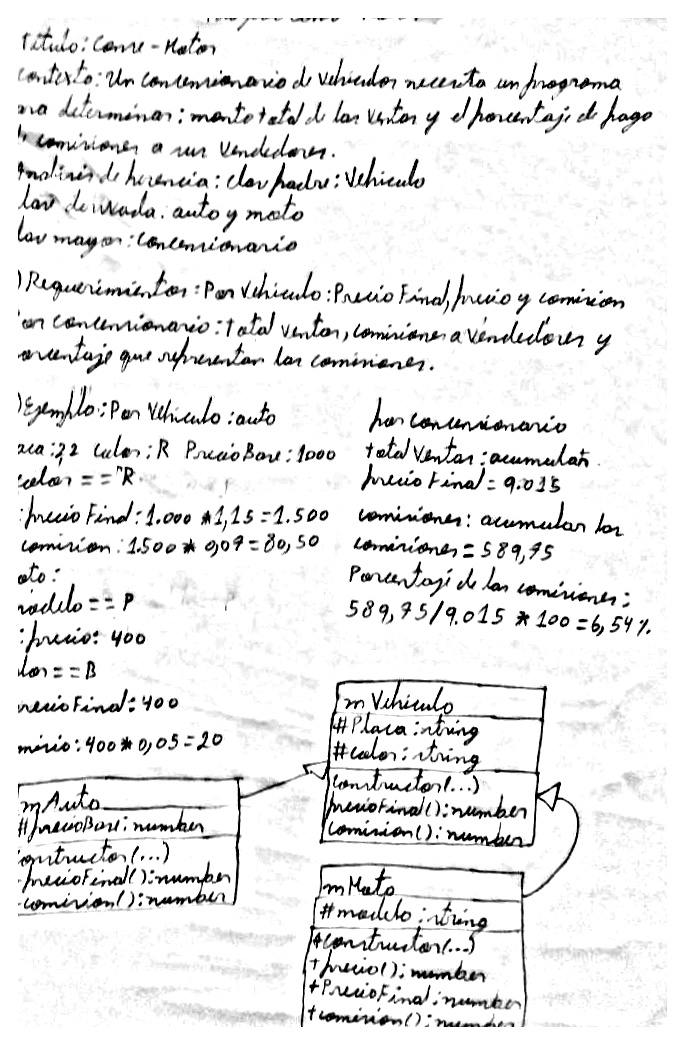 Título: Conre-Motor
contexto: Un concencionario de vehiculos necesita un programa
ra determinar: monto total de las ventas y el porcentaje de pago
comisiones a sus Vendedores.
Analisis de herencia: clas padre: Vehiculo
las derivada: auto y moto
las mayor: Concencionario
) Requerimientos: Por Vehiculo: Precio Final, precio y comision
or concencionario: total ventas, comisiones a Vendedores y
orcentaje que representan las comisiones.
) Ejemplo: Por Vehiculo: auto
aca: 22 color: R Precio Base: 1000
color == "R
: precio Final: 1.000 * 1,15 = 1.500
comision: 1.500 * 0,07 = 80,50
oto:
modelo == P
: precio: 400
lor == B
recio Final: 400
misio: 400 * 0,05 = 20
por concencionario
total Ventas: acumular
precio Final = 9.015
comisiones: acumular las
comisiones = 589,75
Porcentaje de las comisiones:
589,75/9.015 * 100 = 6,54%.
m Vehiculo
#Placa: string
#color: string
constructor(...)
precioFinal(): number
comision(): number
m Auto
#precioBase: number
constructor(...)
precioFinal(): number
comision(): number
m Moto
#modelo: string
+constructor(...)
+precio(): number
+PrecioFinal: number
+comision(): number